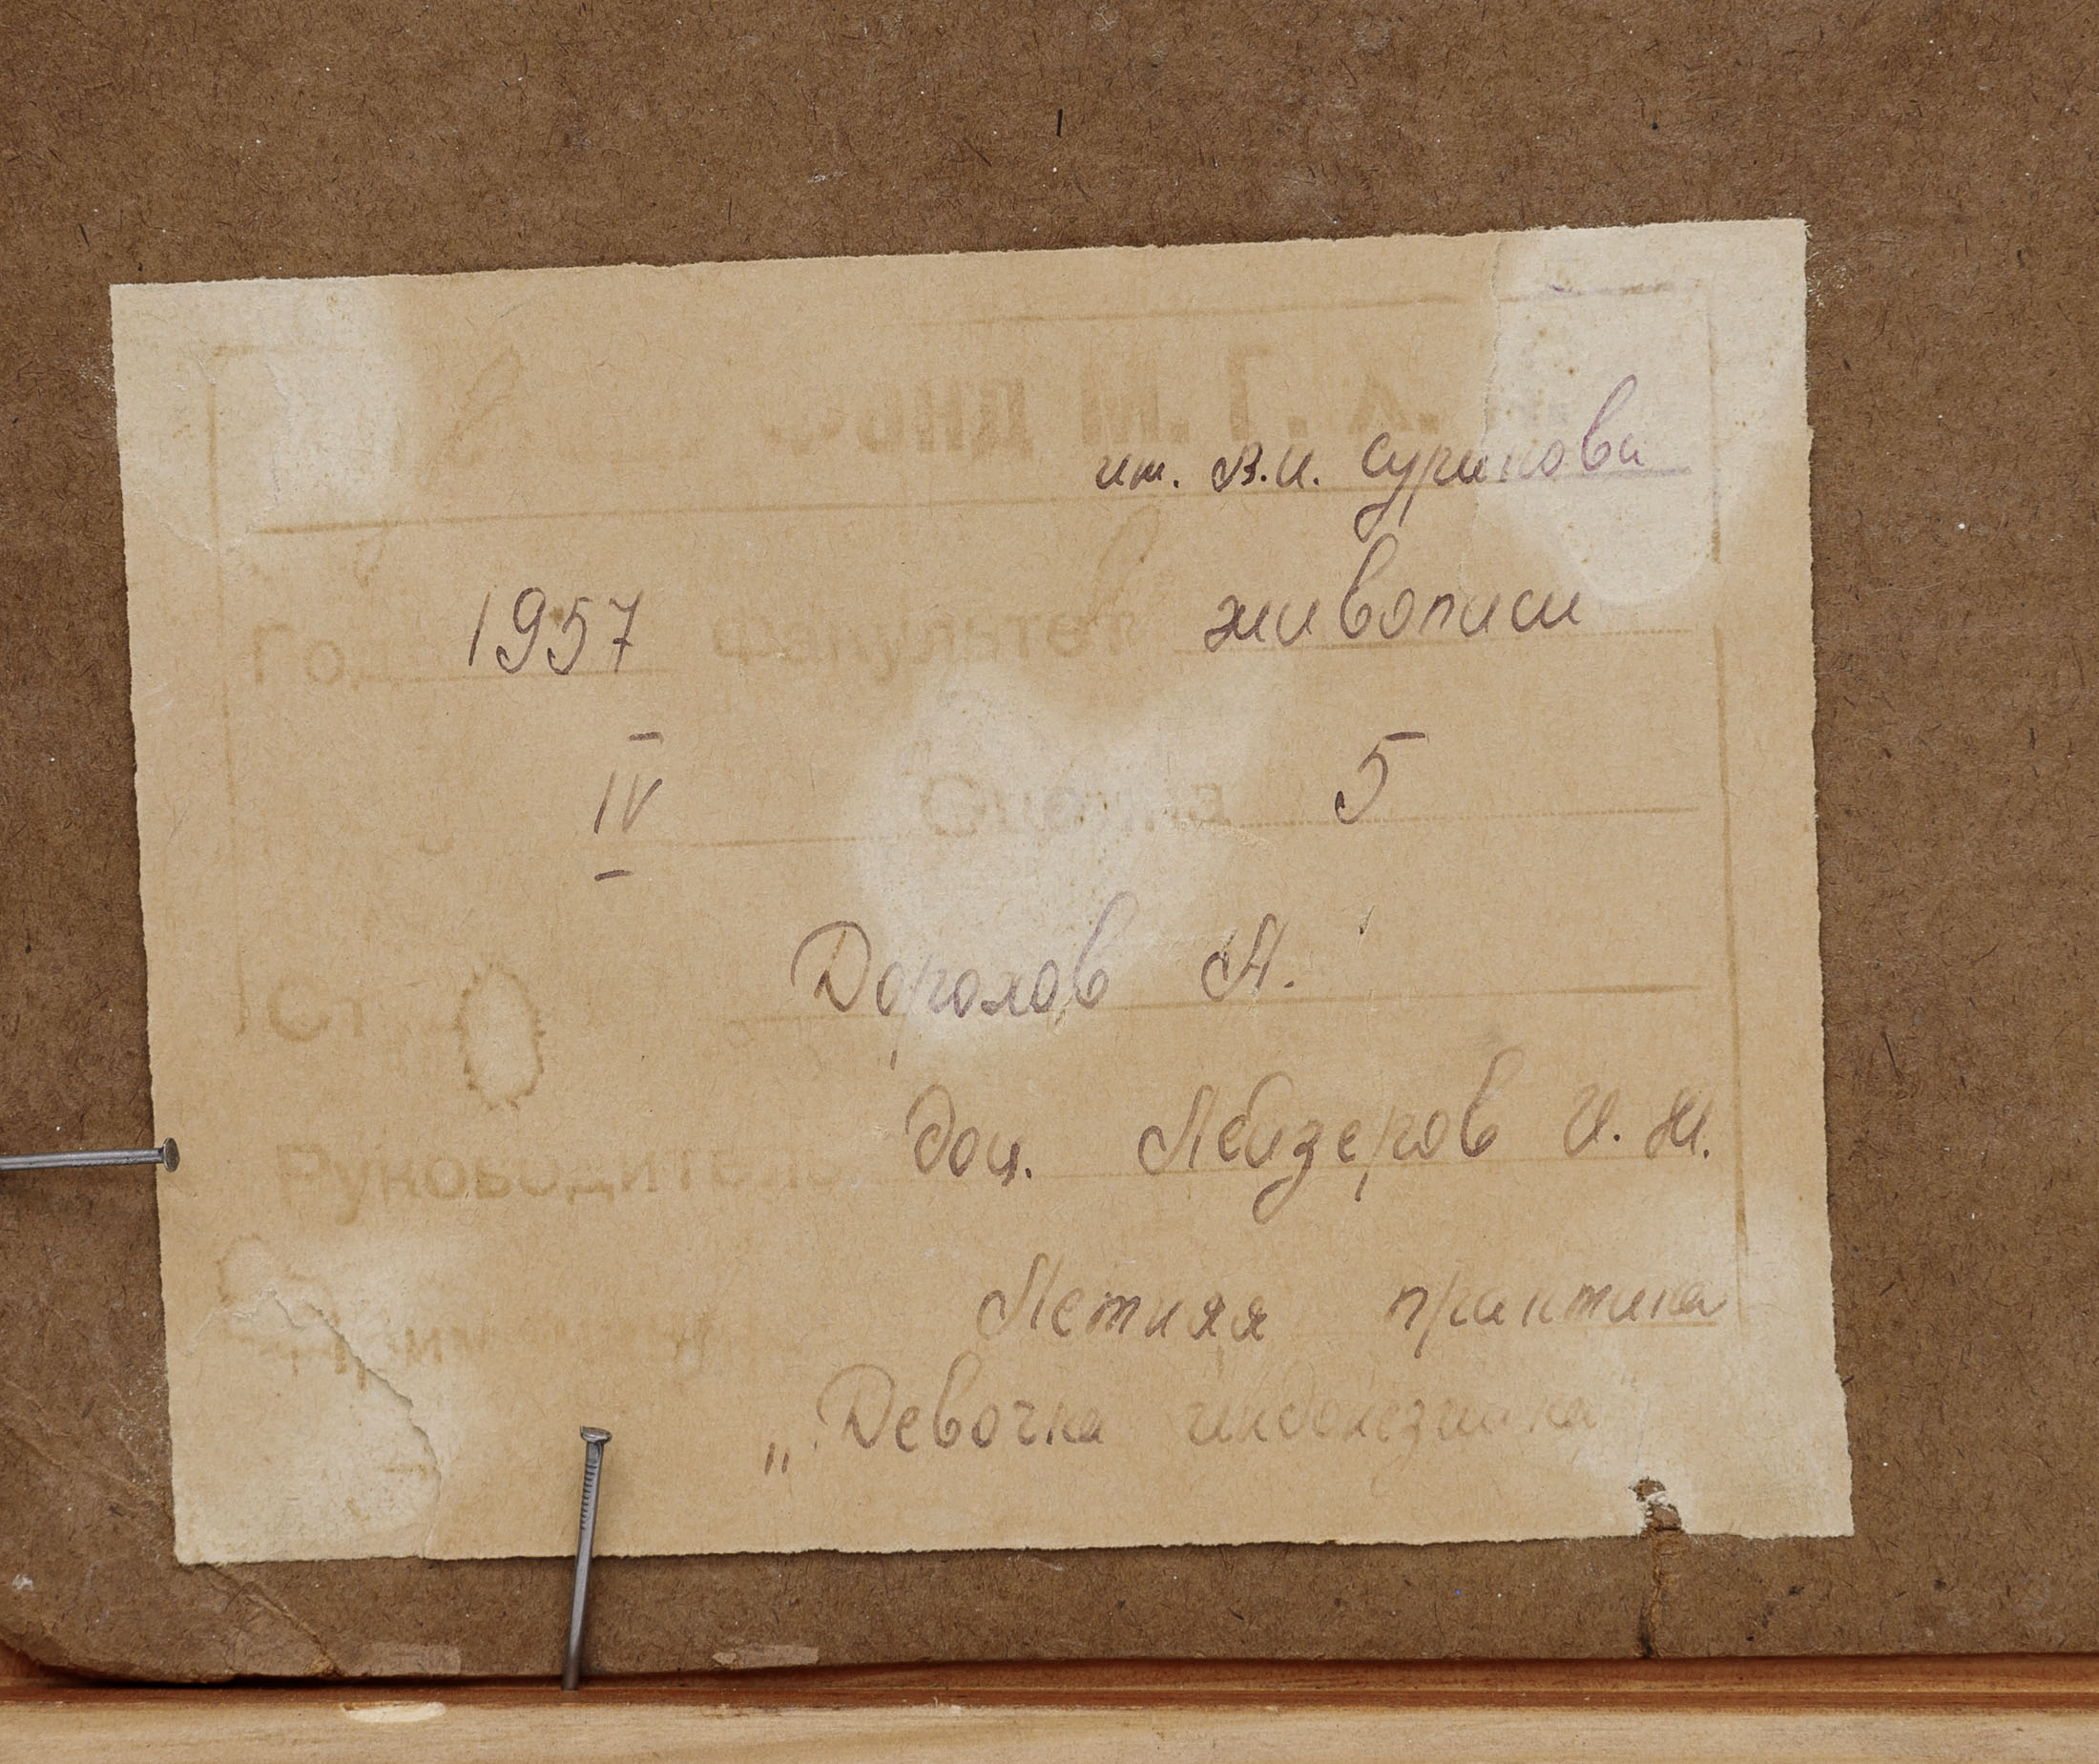 им. В.И. Сурикова
Год 1957 Факультет живописи
IV Оценка 5
Ст Доролов А.
Руководитель доц. Лейзеров И. М.
Летняя практика
„Девочка индонезийка"